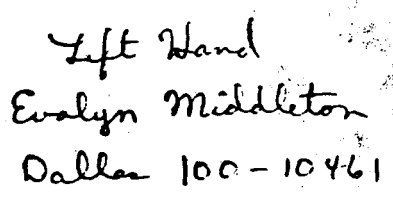 Left Hand
Evalyn Middleton
Dallas 100-10461